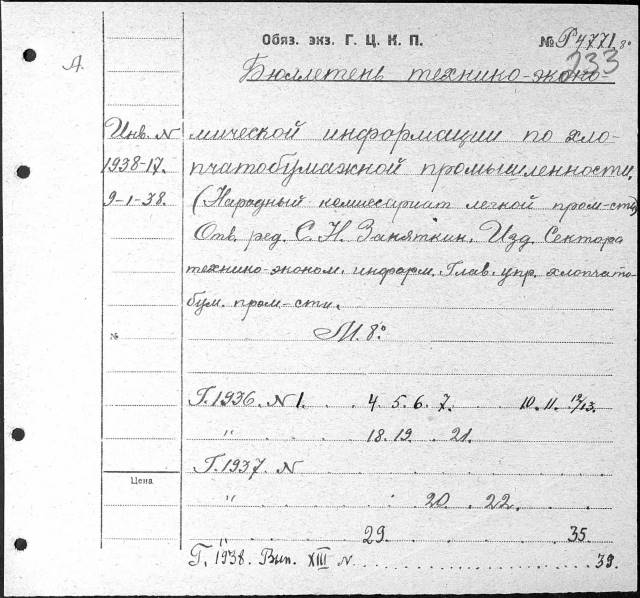 Обяз. экз. Г. Ц. К. П.
№ Р4771 8°
233
А.
Бюллетень технико-эконо-
Инв. N
мической информации по хло-
1938-17.
пчатобумажной промышленности.
9-1-38.
(Народный комиссариат легкой пром-сти)
Отв. ред. С. Н. Заняткин. Изд. Сектора
технико-эконом. информ. Глав. упр. хлопчато-
бум. пром-сти.
№
М. 8°
Г. 1936. N 1. . . 4. 5. 6. 7. . . . 10. 11. 12/13.
" . . . . 18. 19. . 21. . . . .
Г. 1937. N
Цена
" . . . . . 20. . 22. . . .
" 29. . . . . . 35.
Г. 1938. Вып. XIII N . . . . . . . 39.